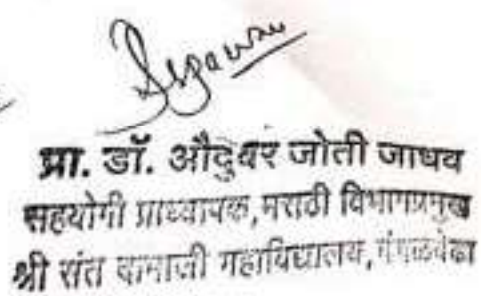 प्रा. डॉ. औदुंबर जोती जाधव
सहयोगी प्राध्यापक,मराठी विभागप्रमुख
श्री संत दामाजी महाविद्यालय,मंगळवेढा